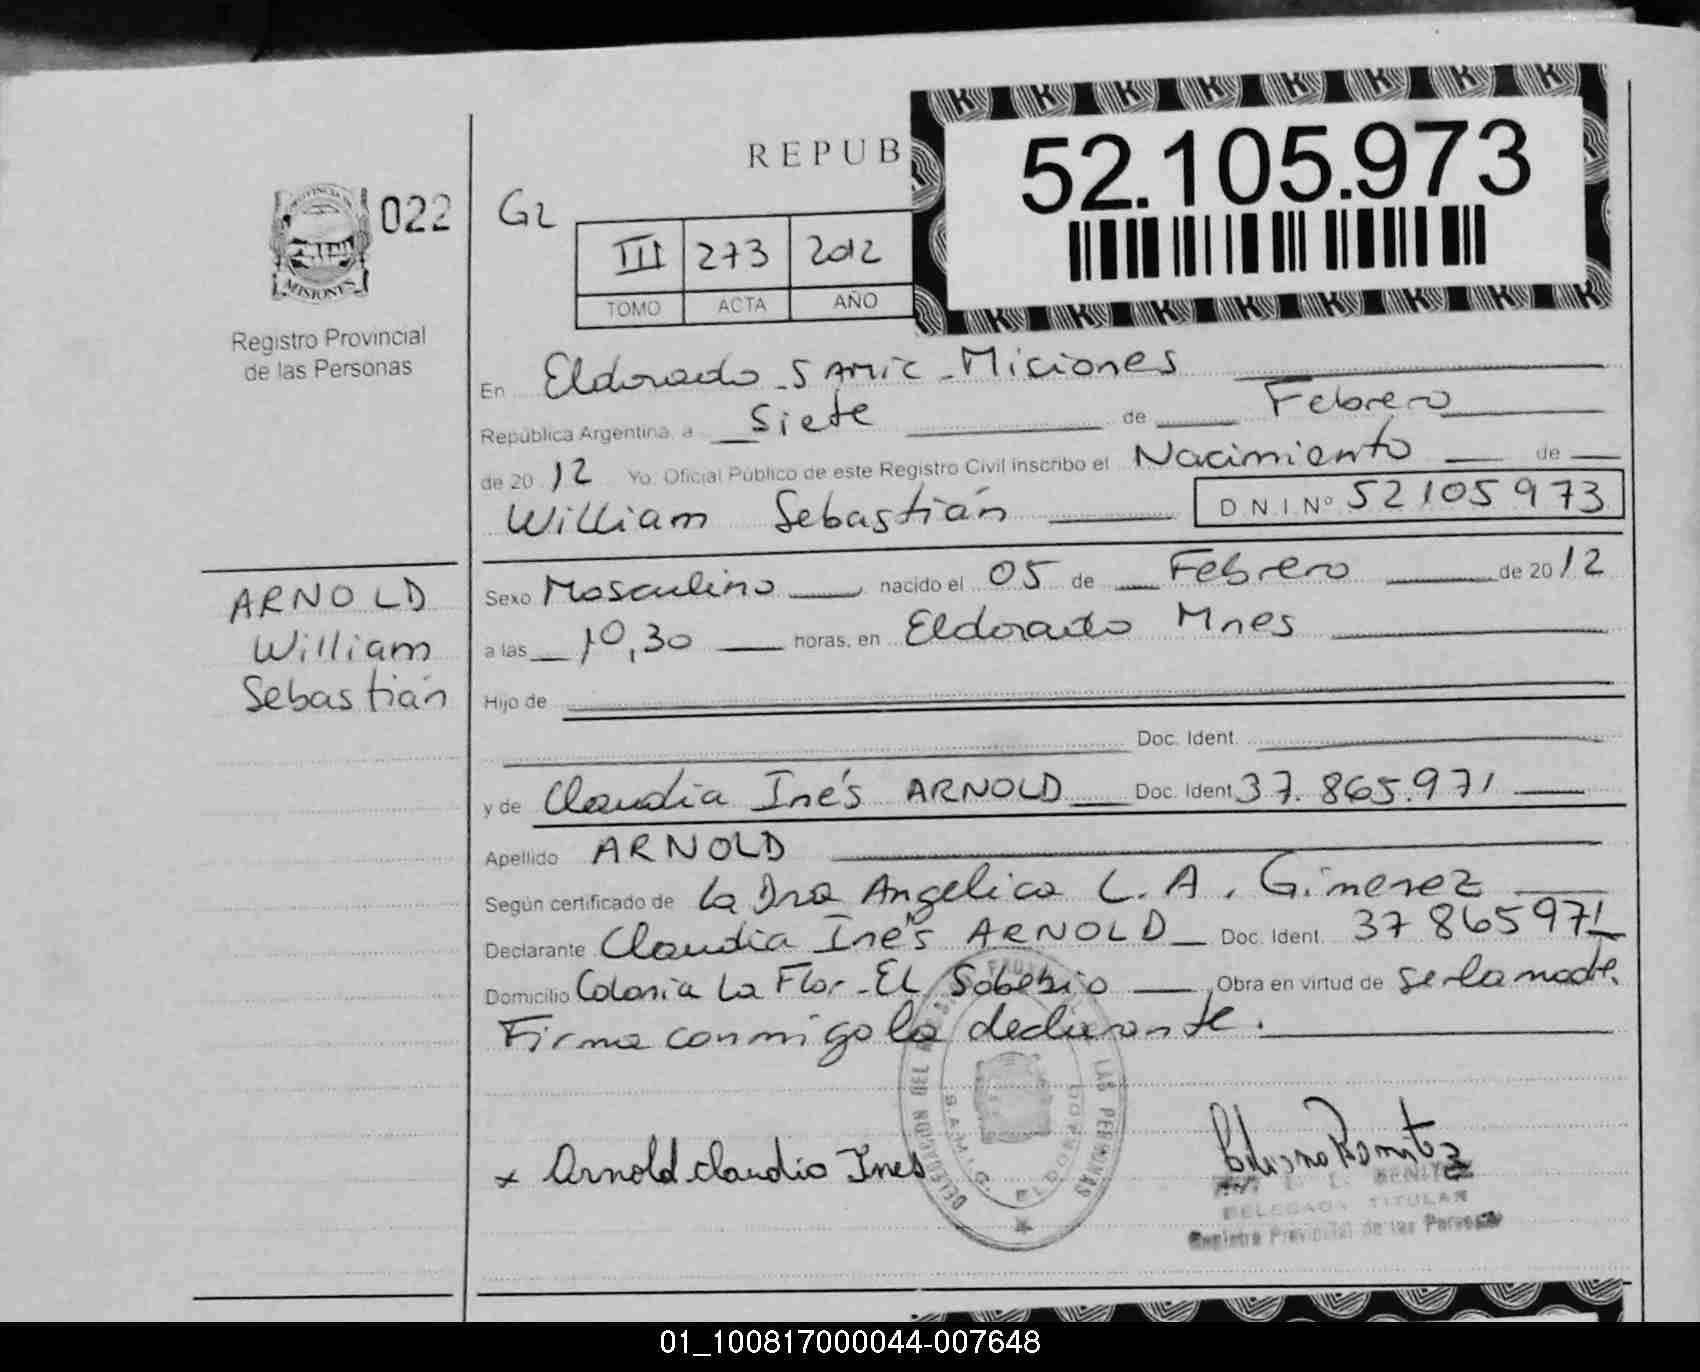 REPUB
52.105.973
022
G2
III 273 2012
TOMO ACTA AÑO
MISIONES
Registro Provincial
de las Personas
En Eldorado - SAMIC - Misiones
República Argentina, a Siete de Febrero
de 2012 Yo. Oficial Público de este Registro Civil inscribo el Nacimiento de
William Sebastián D.N.I. Nº 52105973
ARNOLD
William
Sebastián
Sexo Masculino nacido el 05 de Febrero de 2012
a las 10,30 horas, en Eldorado Mnes
Hijo de
Doc. Ident.
y de Claudia Inés ARNOLD Doc. Ident 37.865.971
Apellido ARNOLD
Según certificado de la Dra Angelica L. A. Gimenez
Declarante Claudia Inés ARNOLD Doc. Ident. 37865971
Domicilio Colonia La Flor - El Soberbio Obra en virtud de ser la madre.
Firma conmigo la declarante.
DELEGACION DEL LAS PERSONAS
S.A.M.I.C. ELDORADO
x Arnold Claudia Ines
DELEGADA TITULAR
Registro Provincial de las Personas
01_100817000044-007648